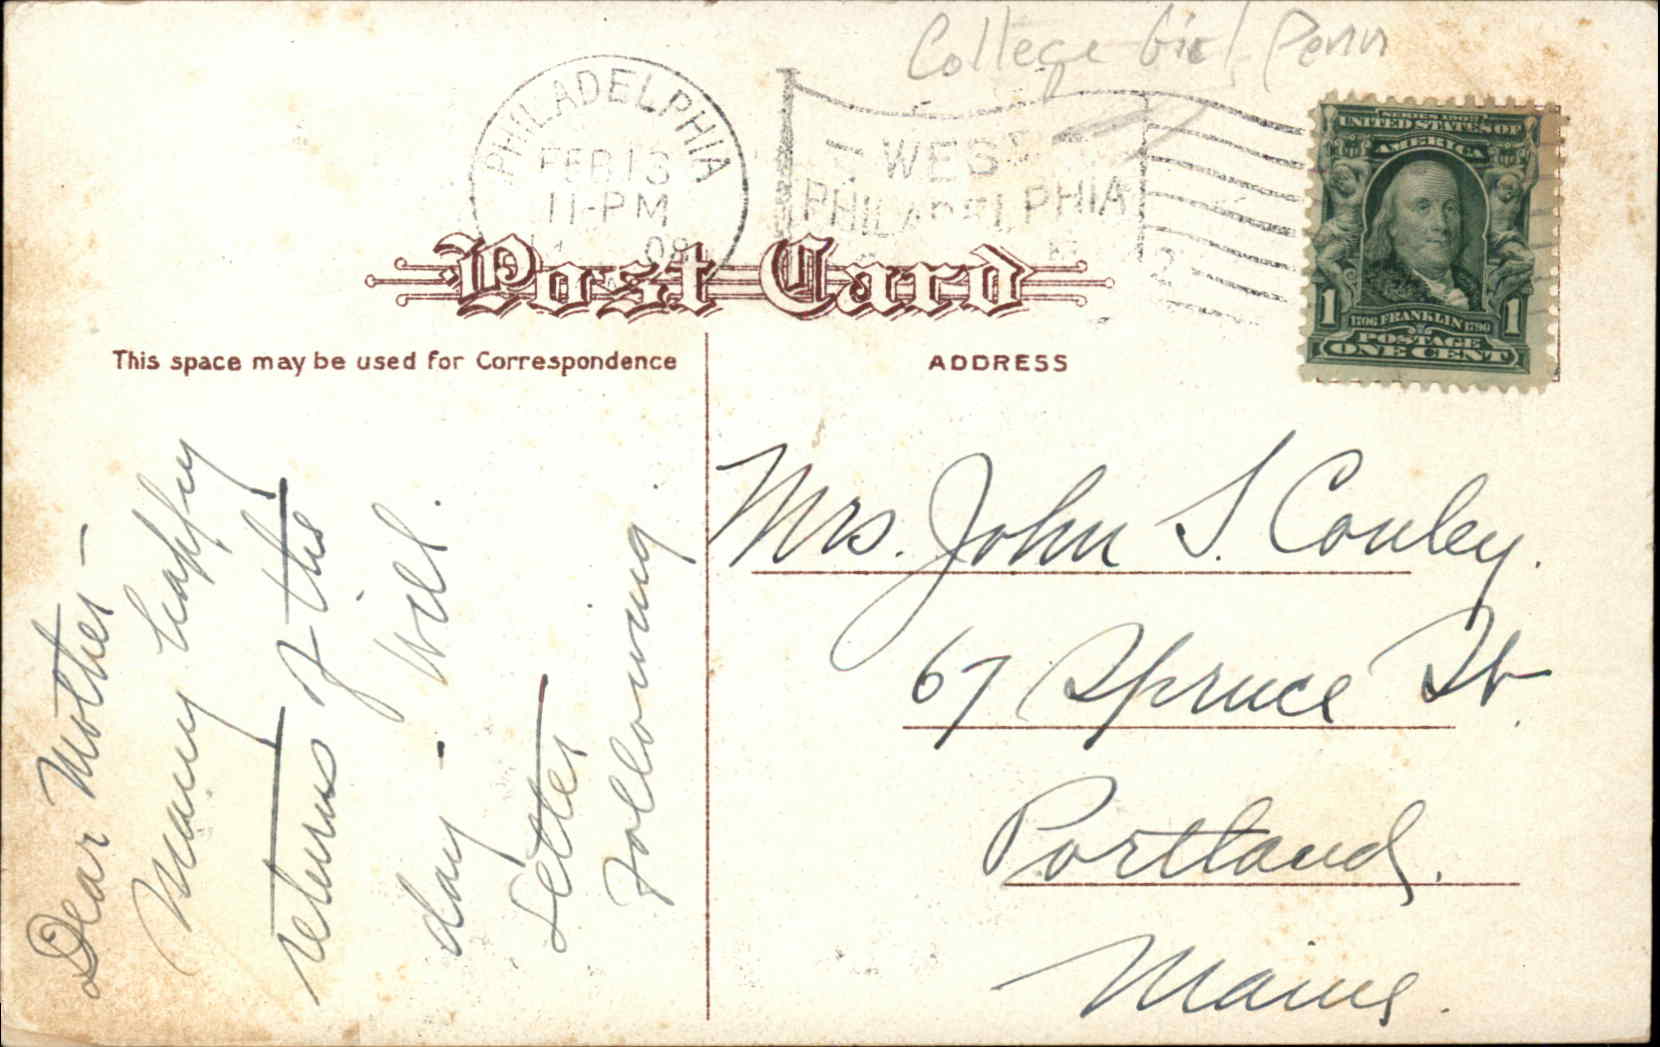 College Girl, Penn
PHILADELPHIA
FEB 13
11-PM
08
WEST
PHILADELPHIA
SERIES 1902
UNITED STATES OF
AMERICA
1 1706 FRANKLIN 1790 1
POSTAGE
ONE CENT
Post Card
This space may be used for Correspondence
ADDRESS
Dear Mother —
Many happy
returns of the
day - Will.
Letter
following.
Mrs. John S. Conley.
67 Spruce St.
Portland.
Maine.